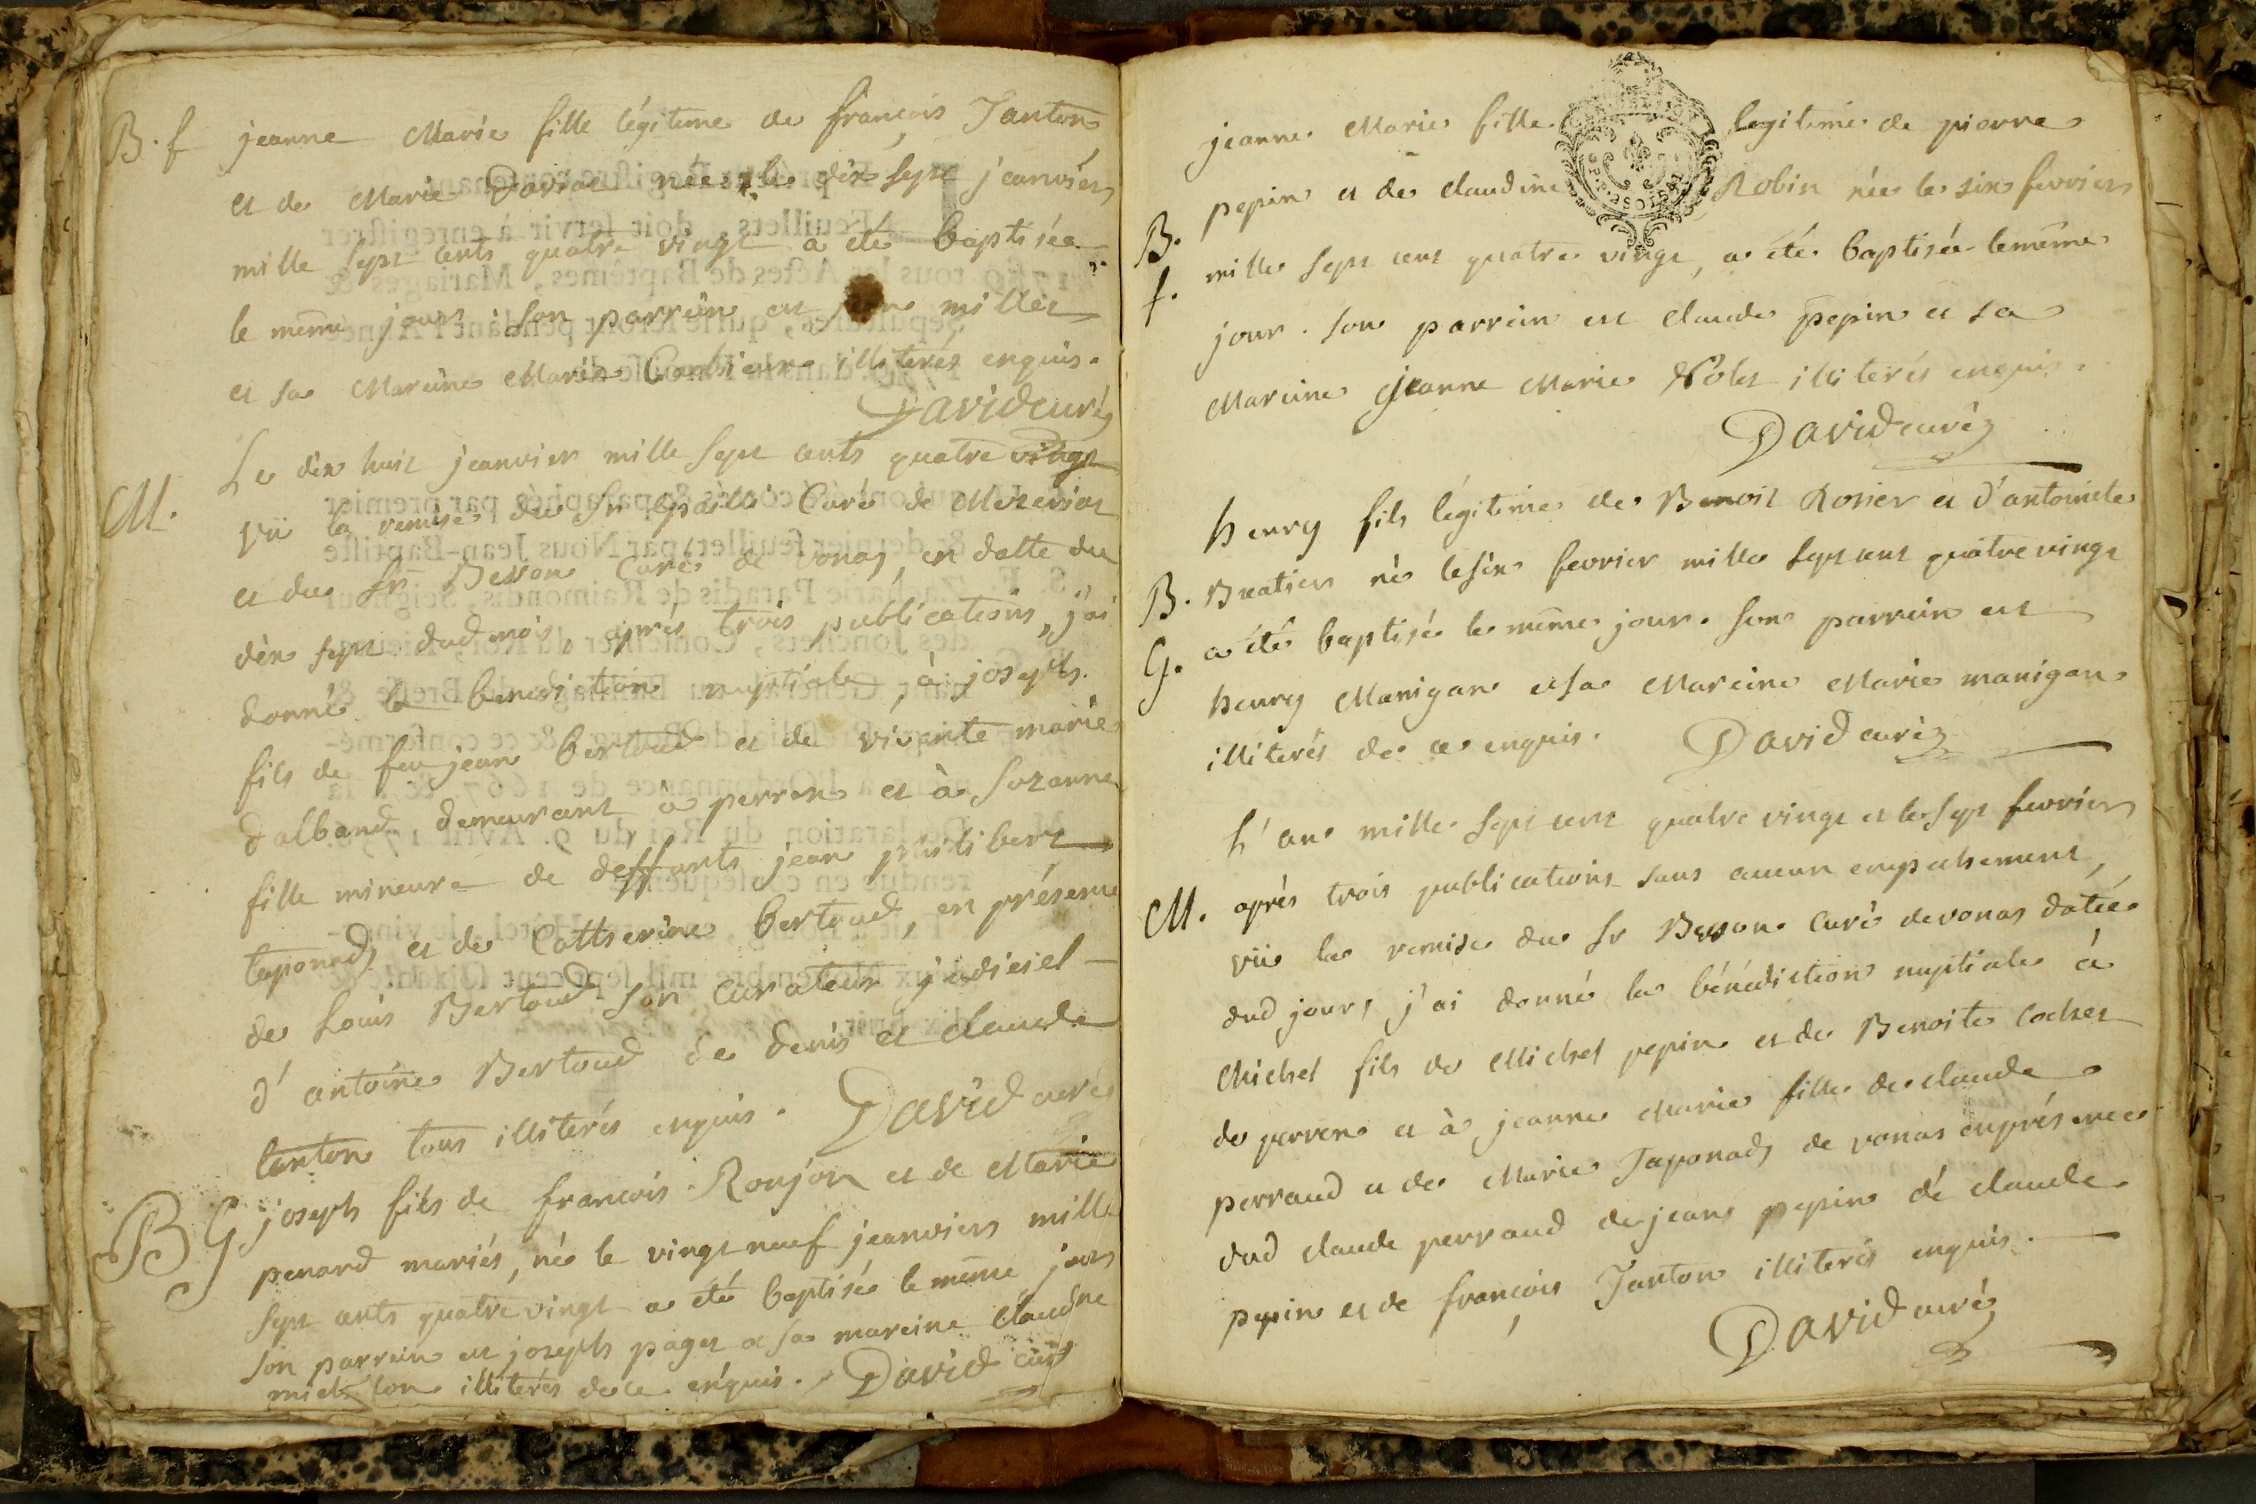 B. f jeanne Marie fille légitime de francois Janton
et de Marie née le dix sept jeanvier
mille sept cents quatre vingt a été baptisée
le même jour. son parrein est millet
et sa Mareine Marie illiterés enquis.
David curé
M. Le dix huit jeanvier mille sept cents quatre vingt
vü la remise du Sr Curé de Mezeriat
et du Sr Besson Curé de vonas, en datte du
dix sept dud mois, après trois publications, j'ai
donné la benediction nuptiale, à joseph
fils de feu jean bertoud et de vivante marie
dalband demeurant a perrex et à Suzanne
fille mineure de deffunts jean philibert
taponad et de Catherine bertoud, en présence
de Louis Bertoud son curateur judiciel
d'antoine Bertoud de denis et claude
tanton tous illiterés enquis. David curé
B G joseph fils de francois Roujon et de Marie
penard mariés, né le vingt neuf jeanvier mille
sept cents quatre vingt a été baptisé le même jour
son parrein est joseph paget et sa mareine claudine
michelon illiterés de ce enquis. David curé
jeanne Marie fille legitime de pierre
pepin et de claudine Robin née le six fevrier
B. f. mille sept cent quatre vingt, a été baptisée le même
jour. son parrein est claude pepin et sa
Mareine jeanne Marie Nolet illiterés enquis.
David curé
henry fils légitime de Benoit Rosier et d'antoinete
B. Buatier né le six fevrier mille sept cent quatre vingt
G. a été baptisé le même jour. son parrein est
henry Manigan et sa Mareine Marie manigan
illiterés de ce enquis. David curé
L'an mille sept cent quatre vingt et le sept fevrier
M. après trois publications sans aucun empechement,
vü la remise du Sr Besson Curé de vonas datée
dud jour, j'ai donné la bénédiction nuptiale à
Michel fils de Michel pepin et de Benoite cochet
de perrex et à jeanne Marie fille de claude
perraud et de Marie Taponad de vonas en présence
dud claude perraud de jean pepin de claude
pepin et de françois Janton illiterés enquis.
David curé